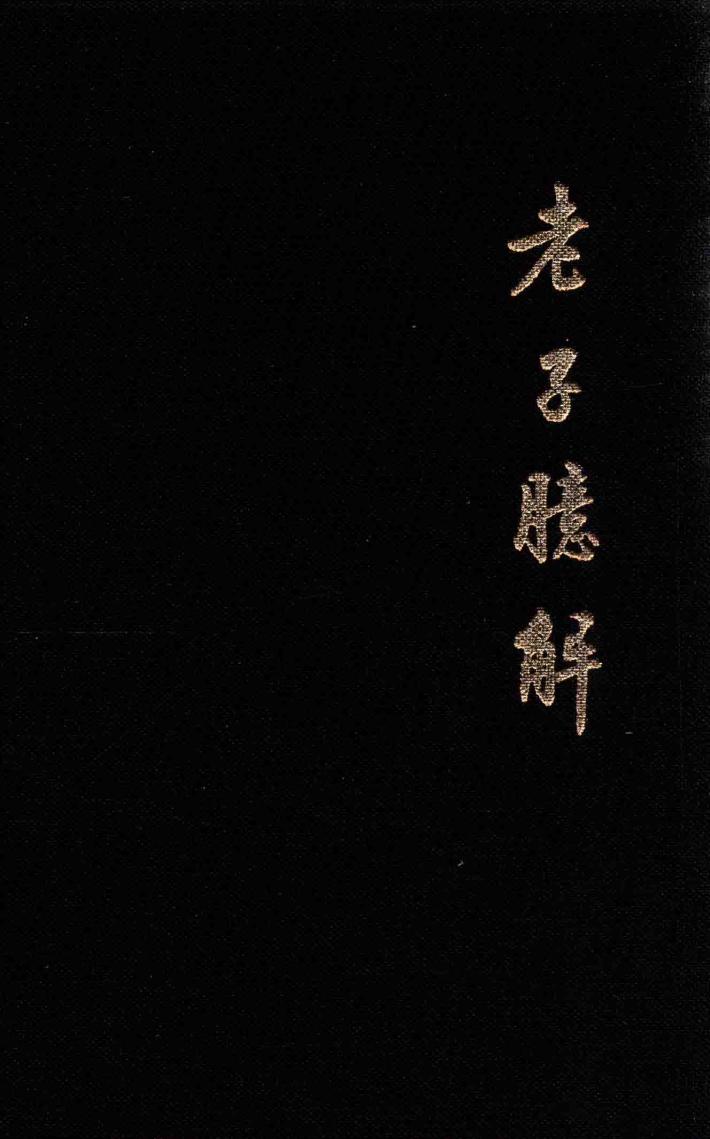 老子臆解